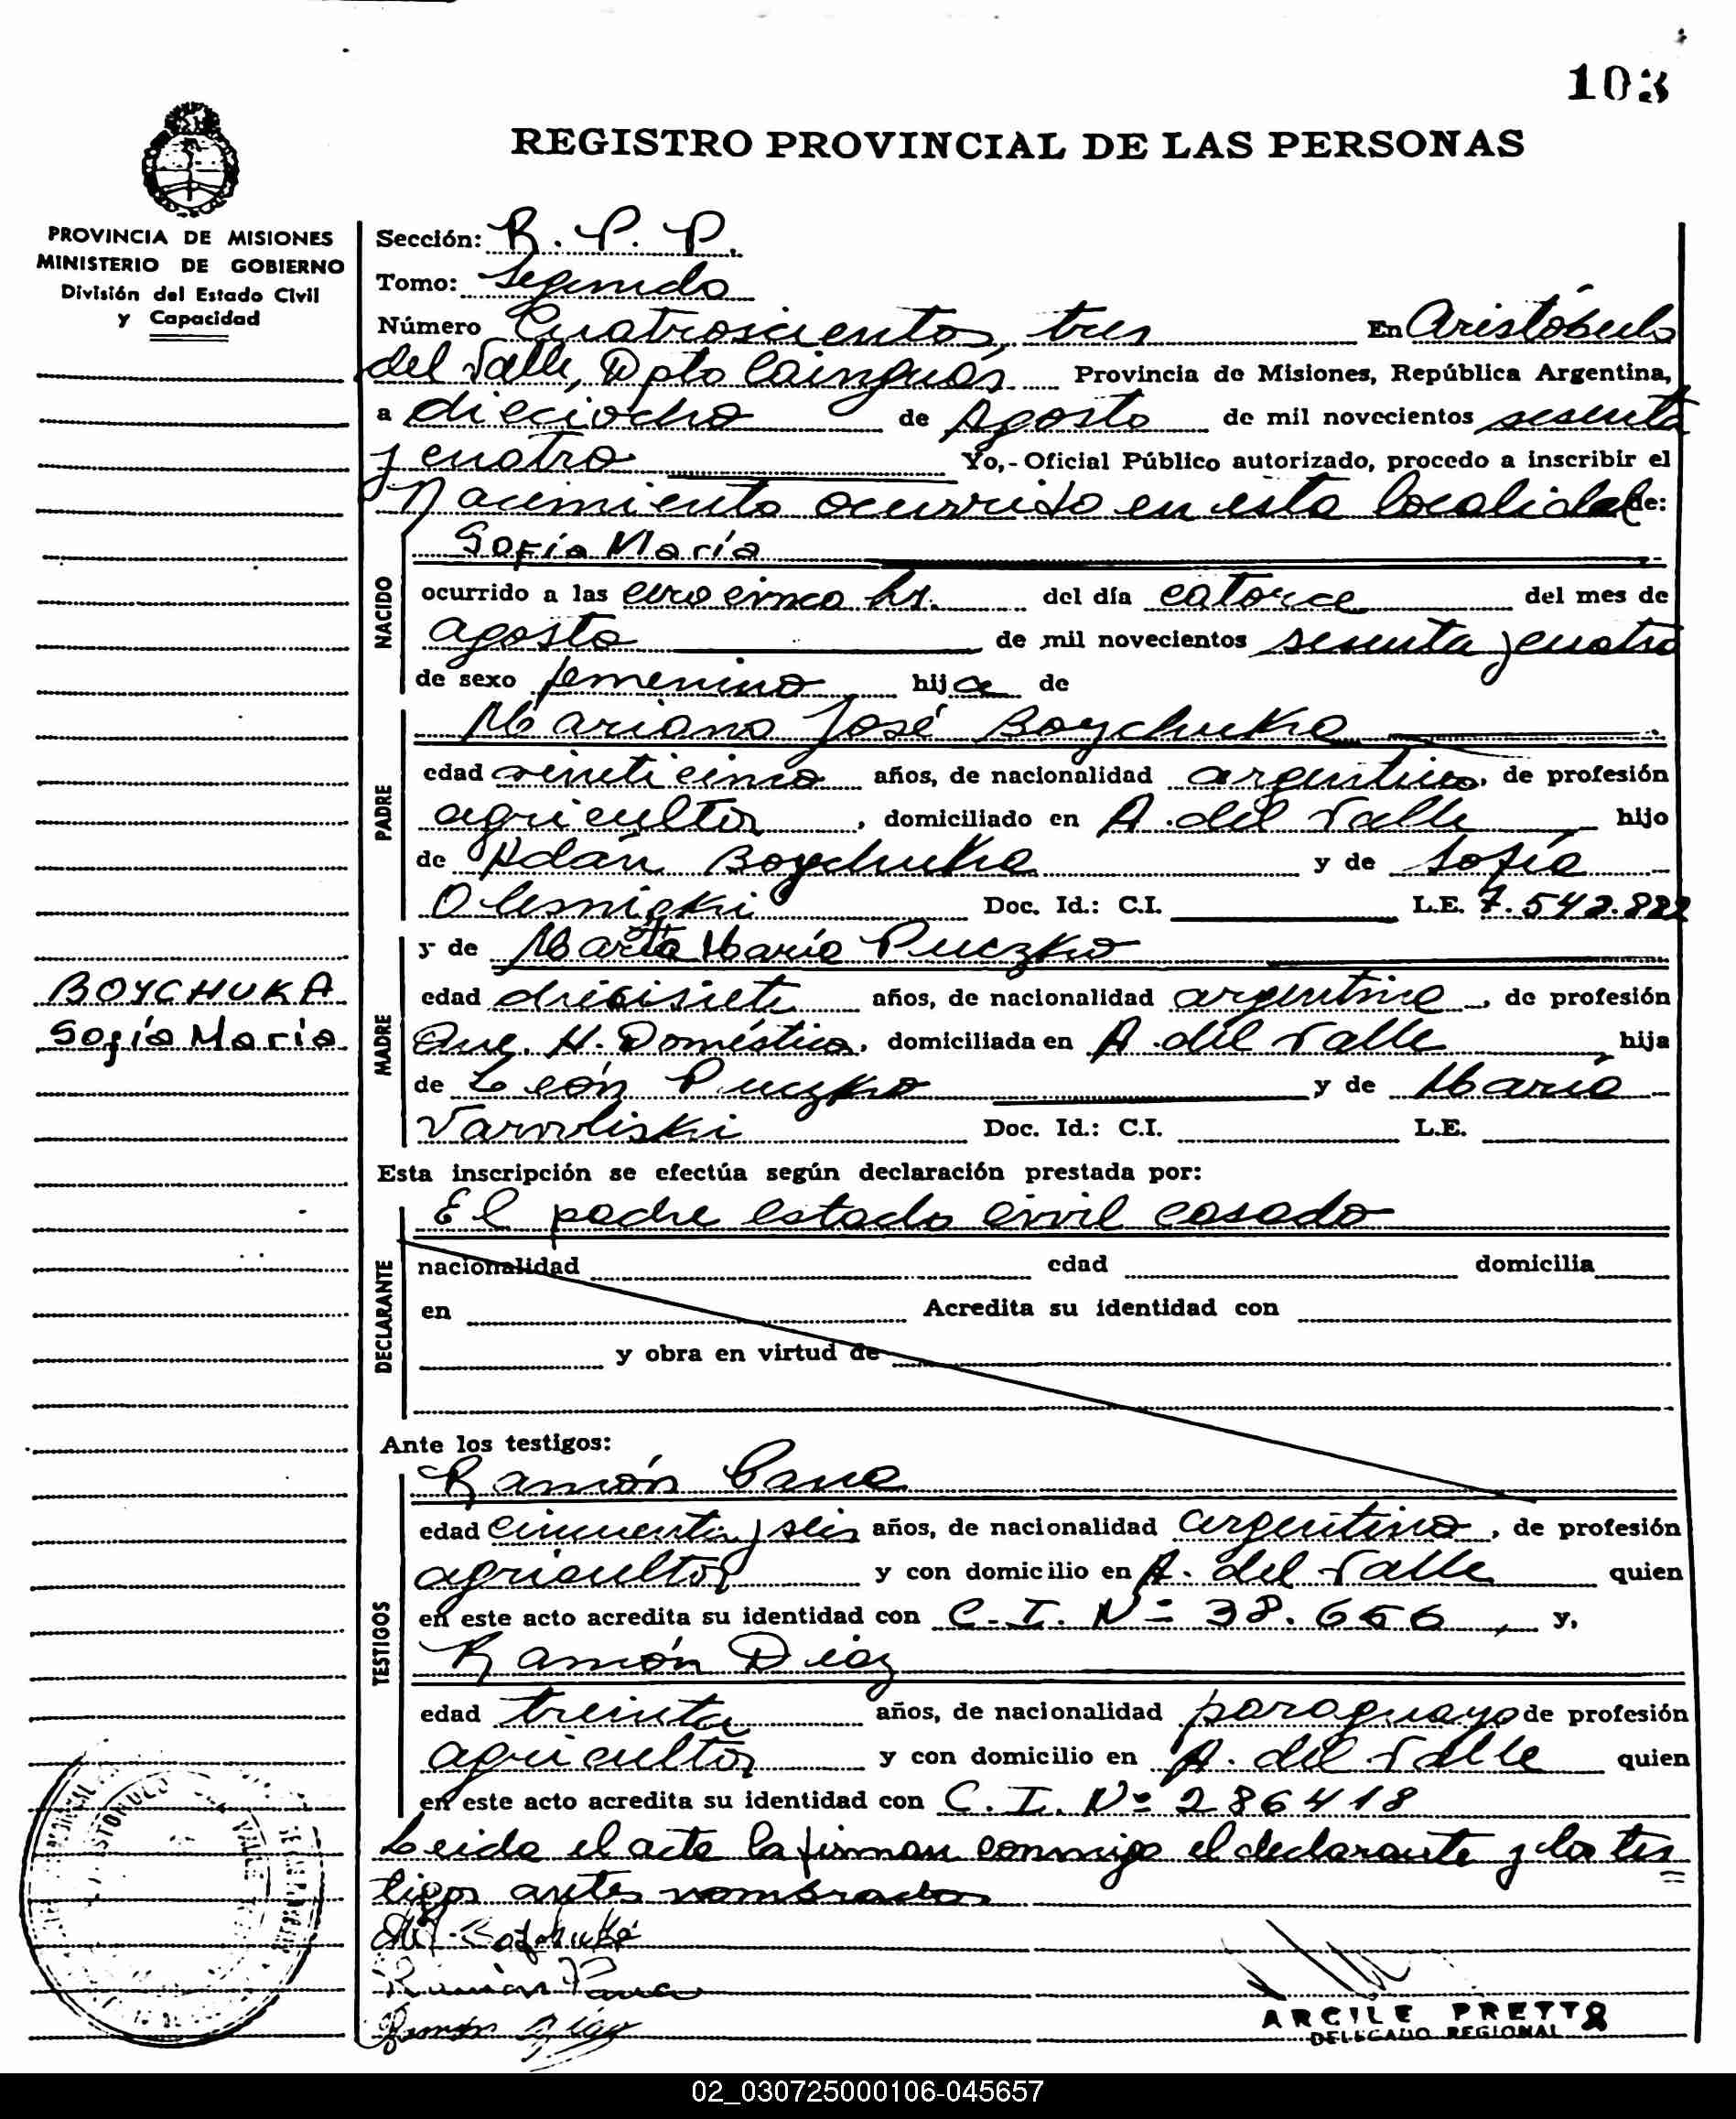 103
REGISTRO PROVINCIAL DE LAS PERSONAS
PROVINCIA DE MISIONES
MINISTERIO DE GOBIERNO
División del Estado Civil
y Capacidad
BOYCHUKA
Sofía María
Sección: R. P. P.
Tomo: Segundo
Número Cuatroscientos tres En Aristóbulo
del Valle, Dpto Cainguás Provincia de Misiones, República Argentina,
a dieciocho de Agosto de mil novecientos sesenta
y cuatro Yo,- Oficial Público autorizado, procedo a inscribir el
Nacimiento ocurrido en esta localidad de:
NACIDO
Sofía María
ocurrido a las cero cinco hs. del día catorce del mes de
agosto de mil novecientos sesenta y cuatro
de sexo femenino hija de
PADRE
Mariano José Boychuka
edad veinticinco años, de nacionalidad argentina, de profesión
agricultor, domiciliado en A. del Valle hijo
de Adán Boychuka y de Sofía
Olesnicki Doc. Id.: C.I. L.E. 7.542.822
MADRE
y de Marta María Puczko
edad diecisiete años, de nacionalidad argentina, de profesión
Que. H. Doméstico, domiciliada en A. del Valle, hija
de León Puczko y de María
Doc. Id.: C.I. L.E.
Esta inscripción se efectúa según declaración prestada por:
DECLARANTE
El padre estado civil casado
nacionalidad edad domicilia
en Acredita su identidad con
y obra en virtud de
Ante los testigos:
TESTIGOS
Ramón
edad cincuenta y seis años, de nacionalidad argentino, de profesión
agricultor y con domicilio en A. del Valle quien
en este acto acredita su identidad con C. I. Nº 38.656, y,
Ramón Diaz
edad treinta años, de nacionalidad paraguayo de profesión
agricultor y con domicilio en A. del Valle quien
en este acto acredita su identidad con C. I. Nº 286418
Leida el acta la firman conmigo el declarante y los tes
tigos antes nombrados
Ramón
Ramón Diaz
ARCILE PRETTO
DELEGADO REGIONAL
02_030725000106-045657